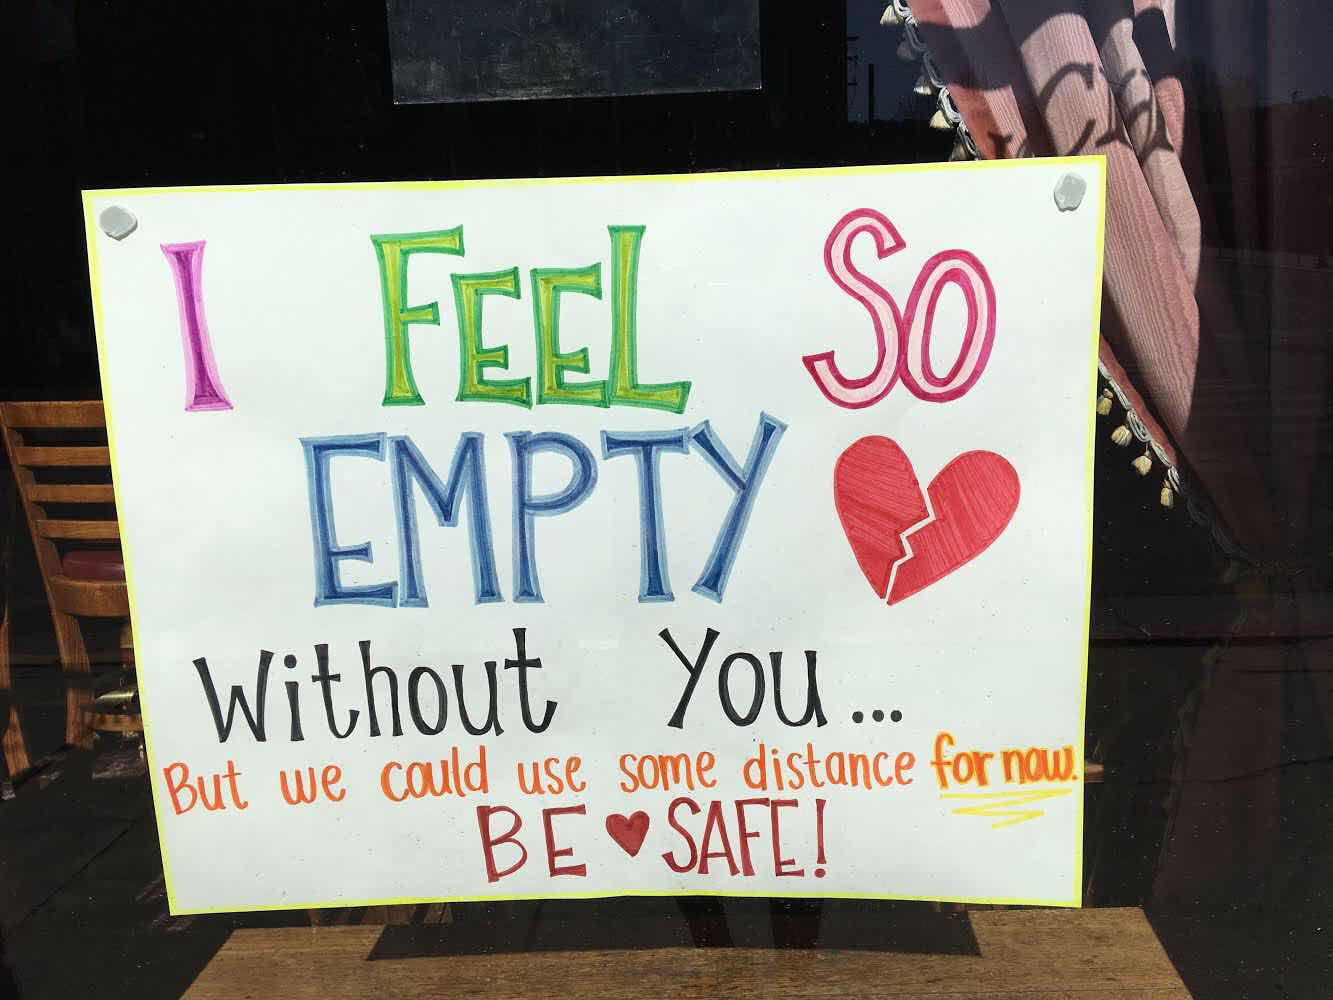 I FEEL SO
EMPTY
Without You...
But we could use some distance for now.
BE SAFE!